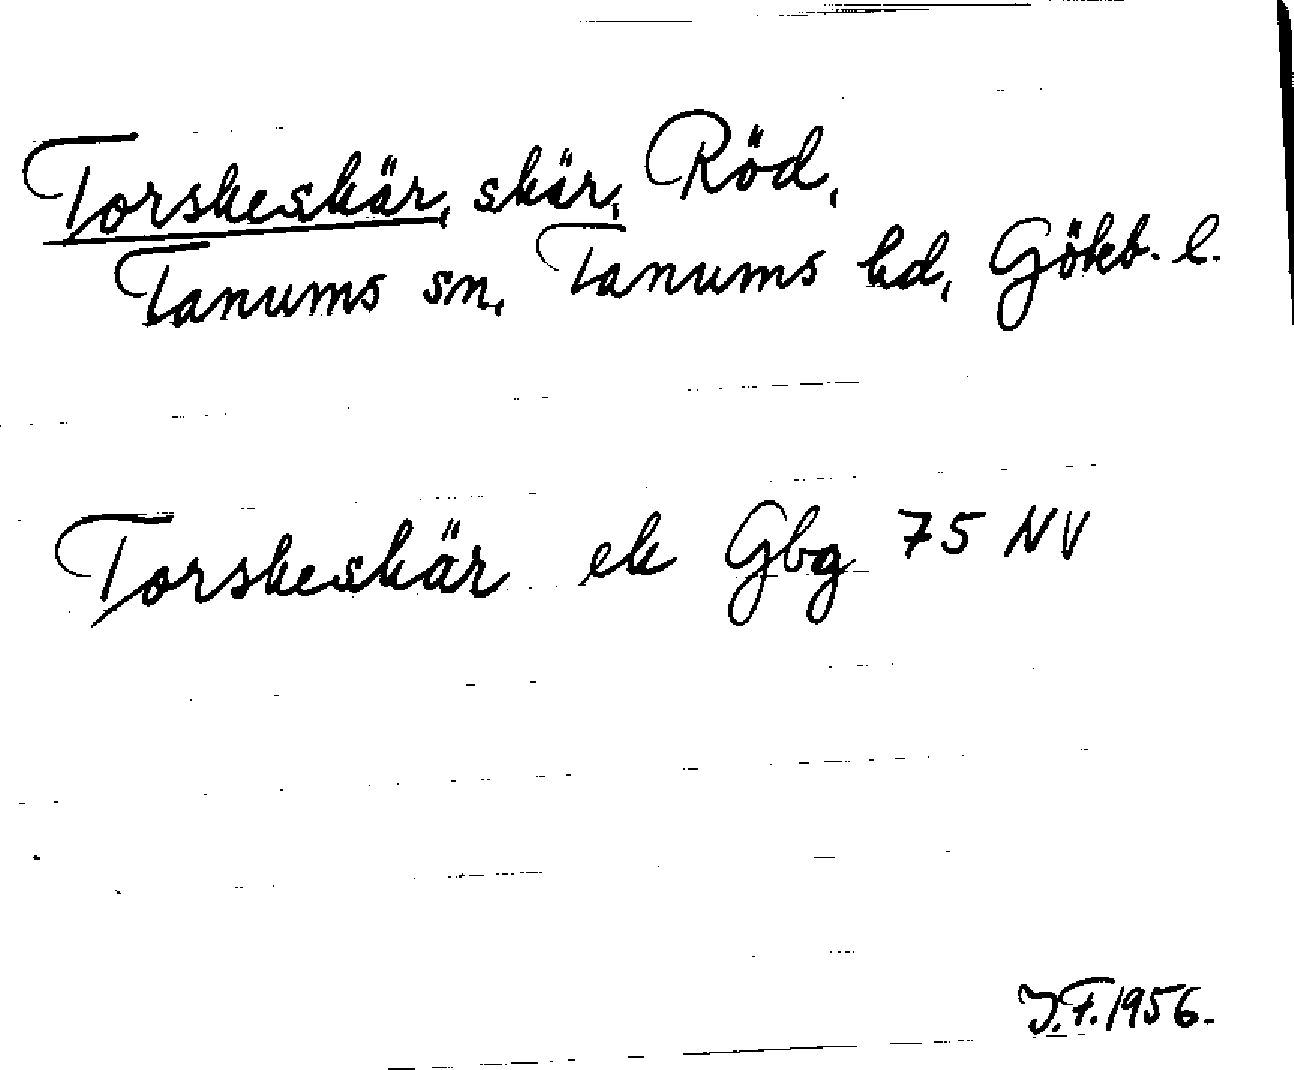 Torskeskär, skär, Röd,
Tanums sn, Tanums hd, Göteb. l.
Torskeskär ek Gbg 75 NV
J.F. 1956.